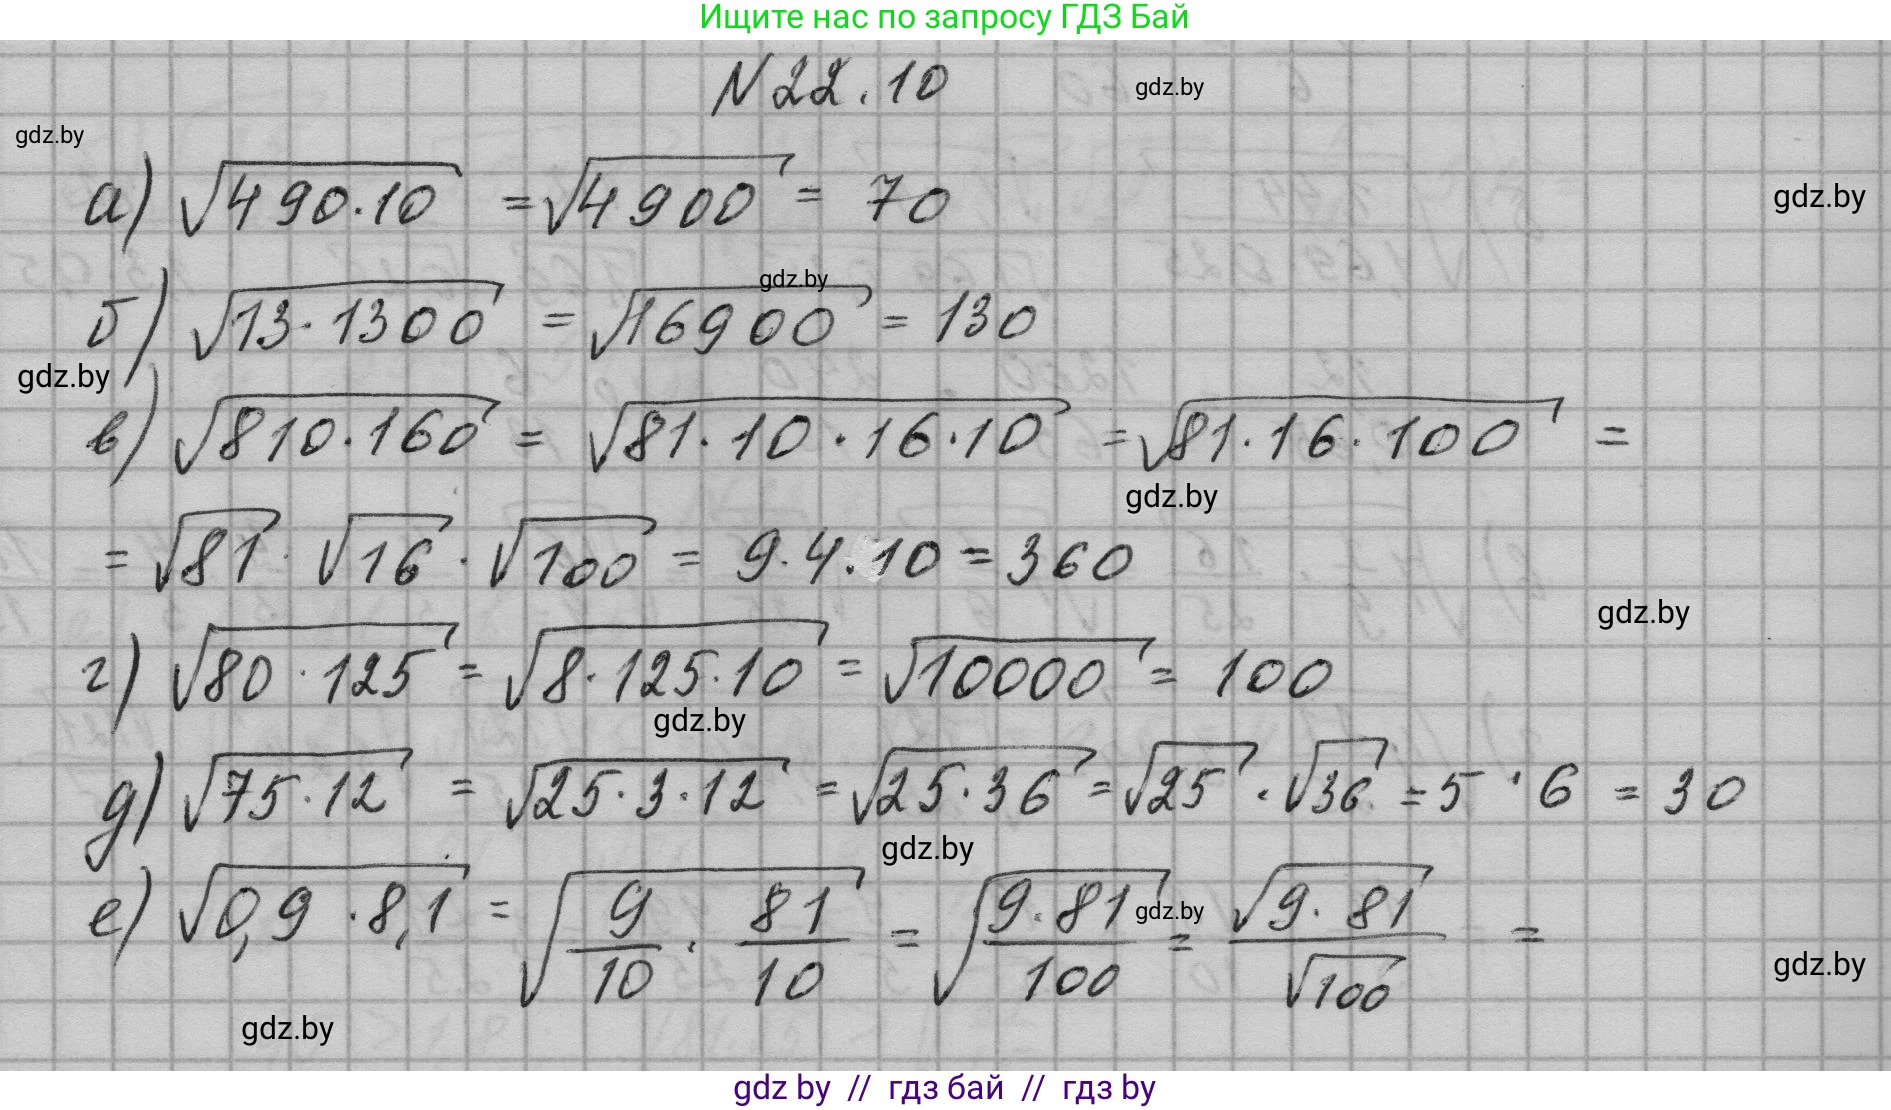 Ищите нас по запросу ГДЗ Бай
N 22.10
gdz.by
gdz.by
а) √490·10 = √4900 = 70
gdz.by
gdz.by
б) √13·1300 = √16900 = 130
gdz.by
в) √810·160 = √81·10·16·10 = √81·16·100 =
gdz.by
= √81 · √16 · √100 = 9·4·10 = 360
gdz.by
г) √80·125 = √8·125·10 = √10000 = 100
gdz.by
д) √75·12 = √25·3·12 = √25·36 = √25 · √36 = 5·6 = 30
gdz.by
е) √0,9·8,1 = √9/10 · 81/10 = √9·81/100 = √9·81/√100 =
gdz.by
gdz.by
gdz.by
gdz by // гдз бай // гдз by